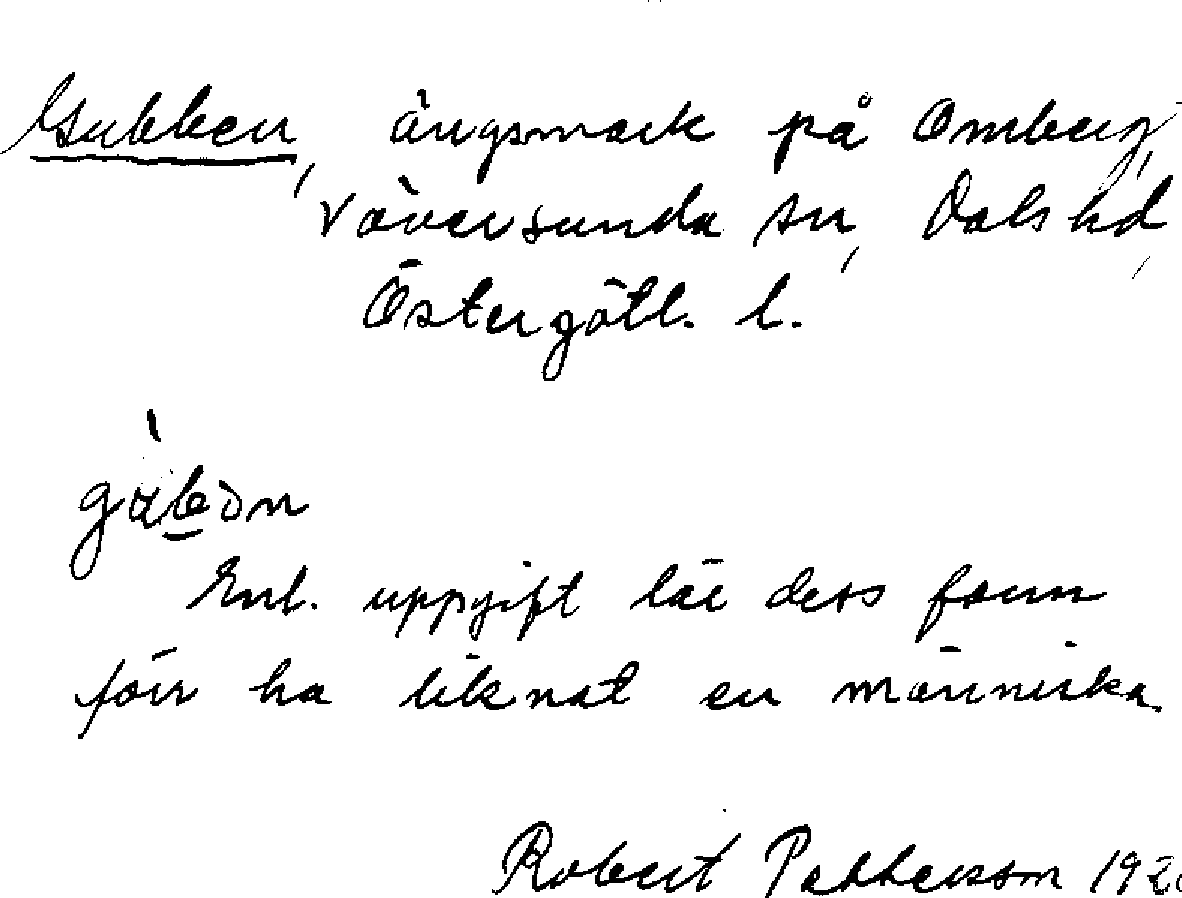 Gubben, ängsmark på Omberg,
Väversunda sn, Dals hd,
Östergötl. l.
Enl. uppgift lär dess form
förr ha liknat en människa.
Robert Pettersson